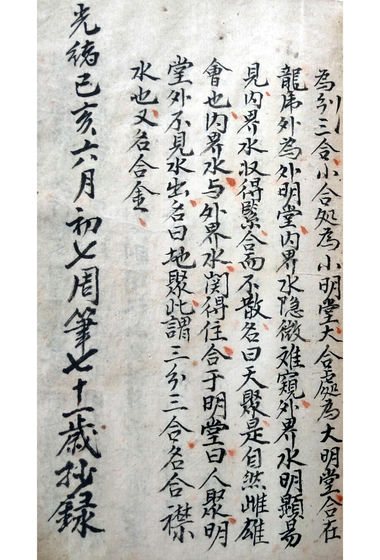 為引三合小合処為小明堂大合處為大明堂合在
龍虎外為外明堂内界水隐微难窺外界水明顯易
見内界水収得緊合而不散名曰天聚是自然雌雄
會也内界水与外界水関得住合于明堂曰人聚明
堂外不見水出名曰地聚此謂三分三合名合襟
水也又名合金
光緒己亥六月初七周筆七十一歲抄録